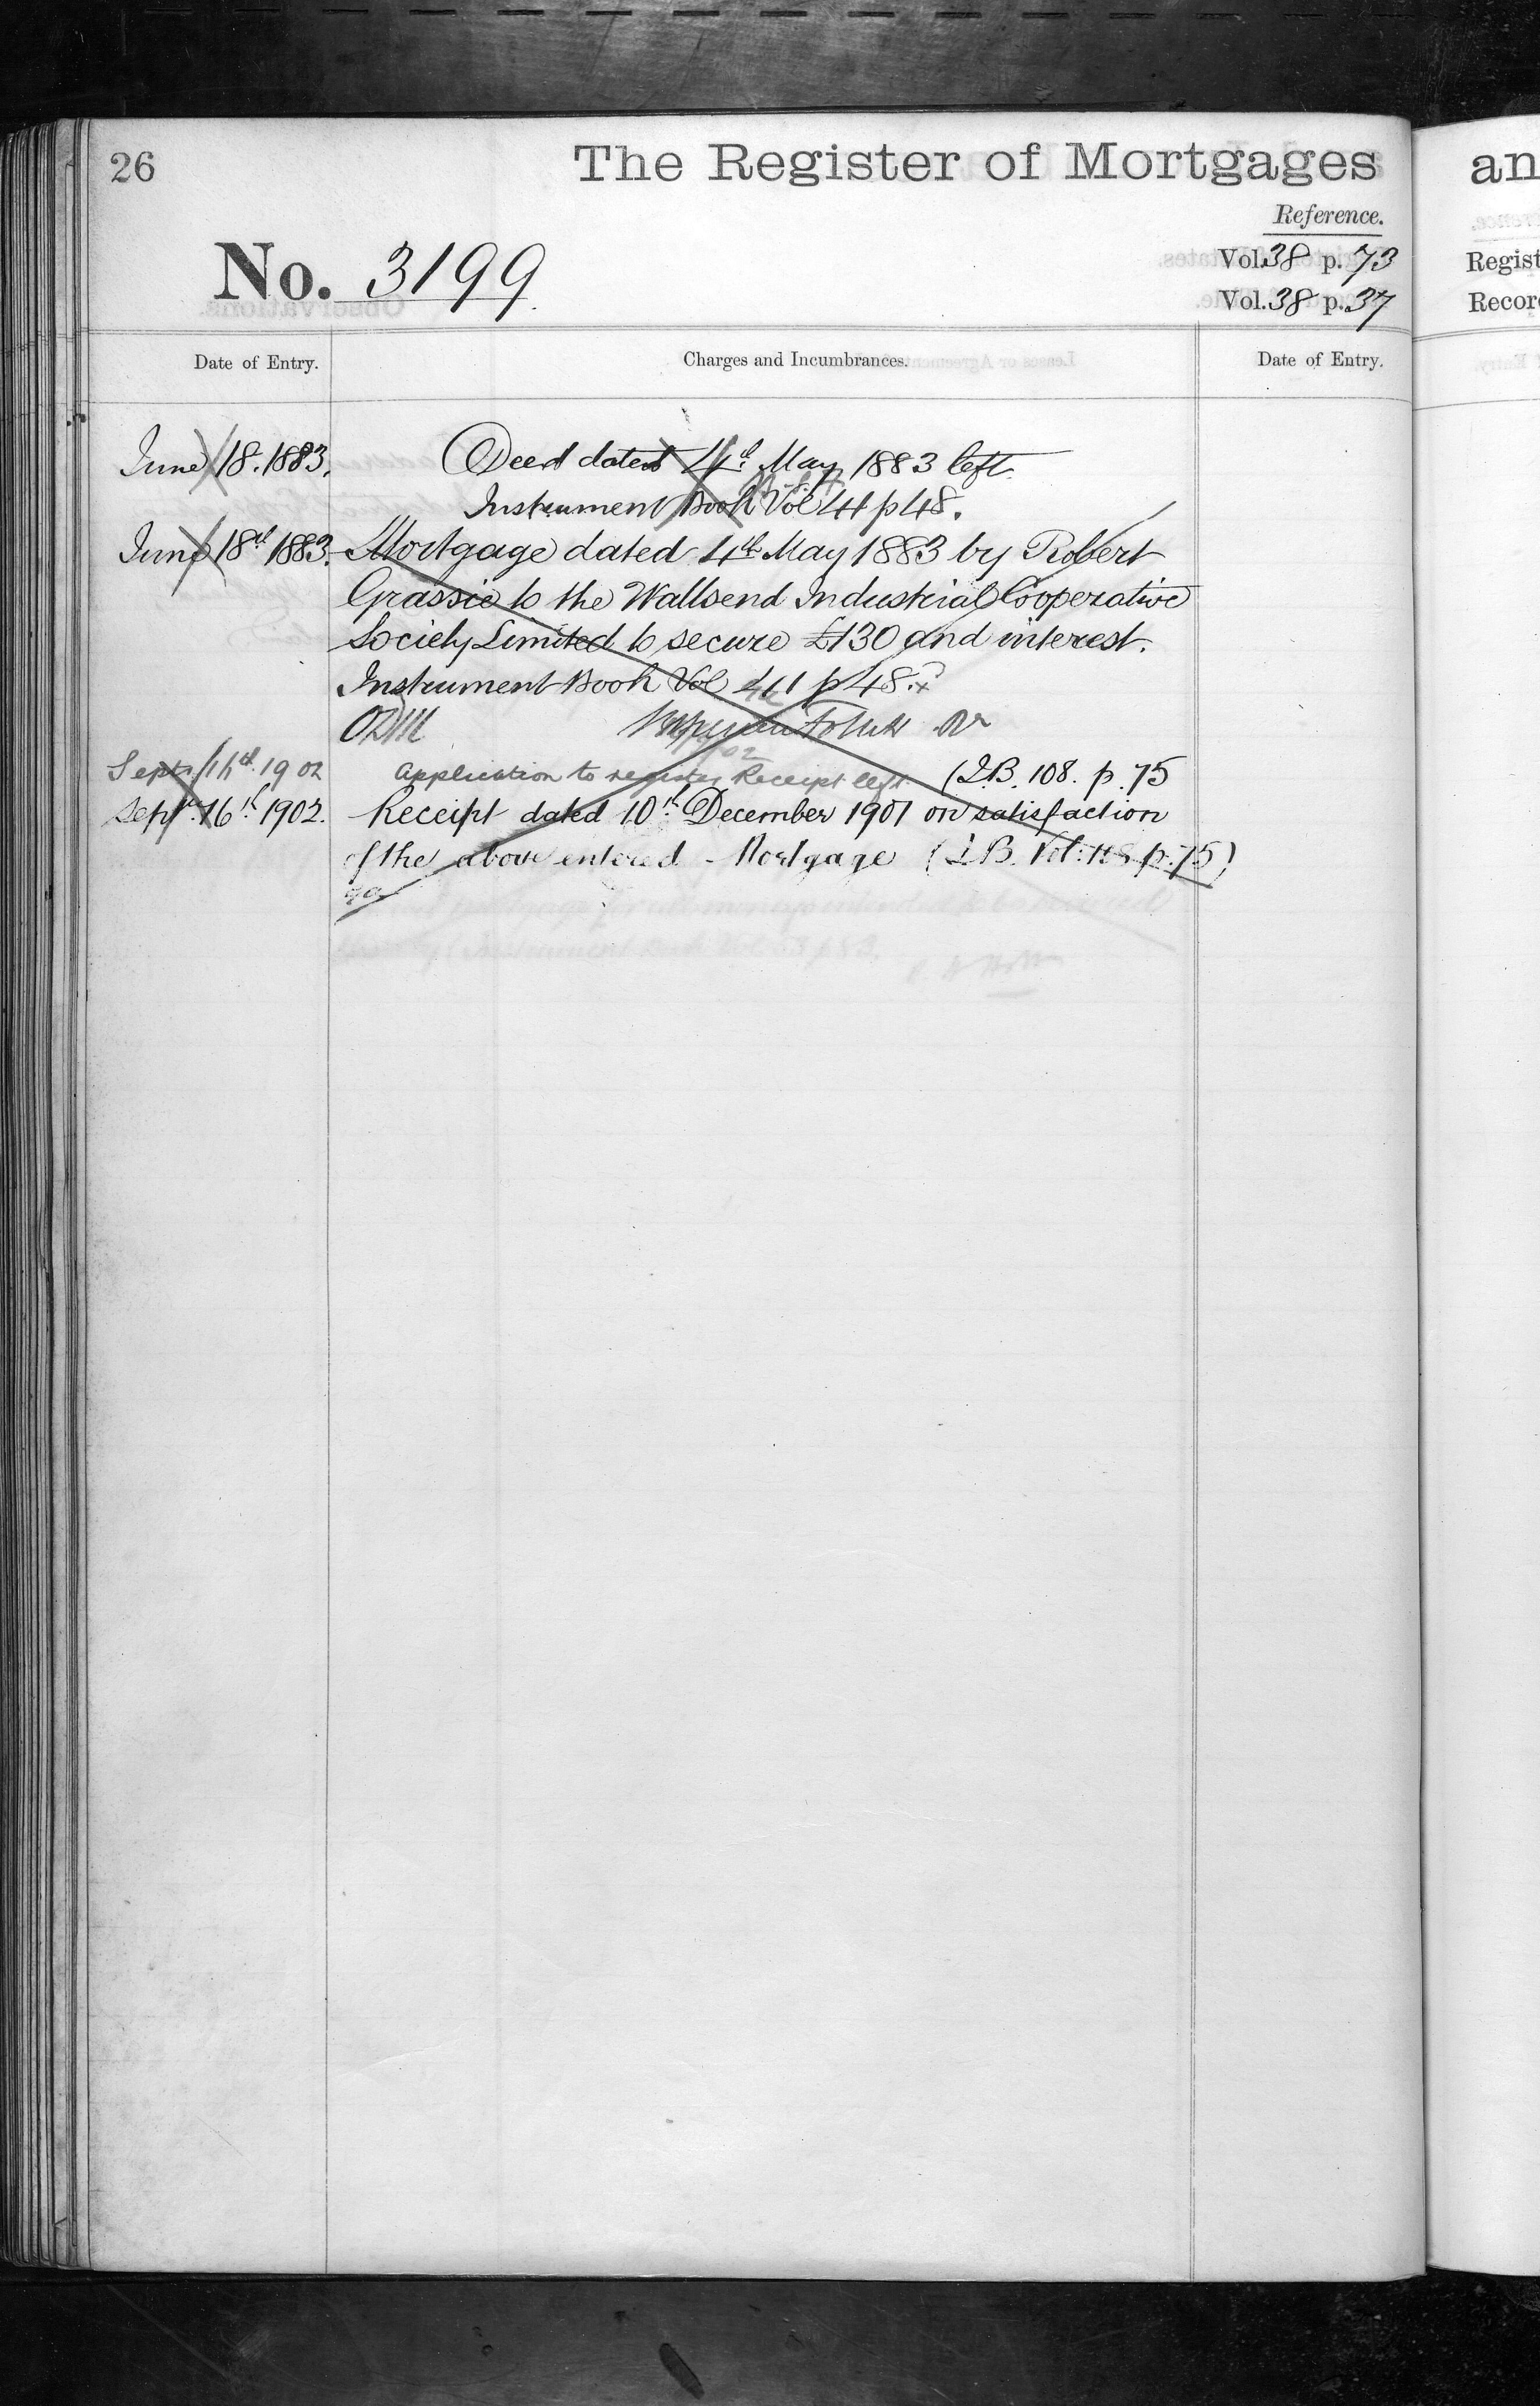 26
The Register of Mortgages
an
Reference.
No. 3199
Vol. 38 p. 73
Regist
Vol. 38 p. 37
Recor
Date of Entry.
Charges and Incumbrances.
Date of Entry.
June 18. 1883. Deed dated 4th May 1883 left.
Instrument Book Vol 44 p 48.
June 18th 1883. Mortgage dated 4th May 1883 by Robert
Grassie to the Wallsend Industrial Cooperative
Society Limited to secure £130 and interest.
Instrument Book Vol p 48.
Sept. 1902 Application to register Receipt left (I.B. 108. p. 75
Sept. 16th 1902. Receipt dated 10th December 1901 on satisfaction
of the above entered Mortgage (I.B. Vol: 108 p. 75)